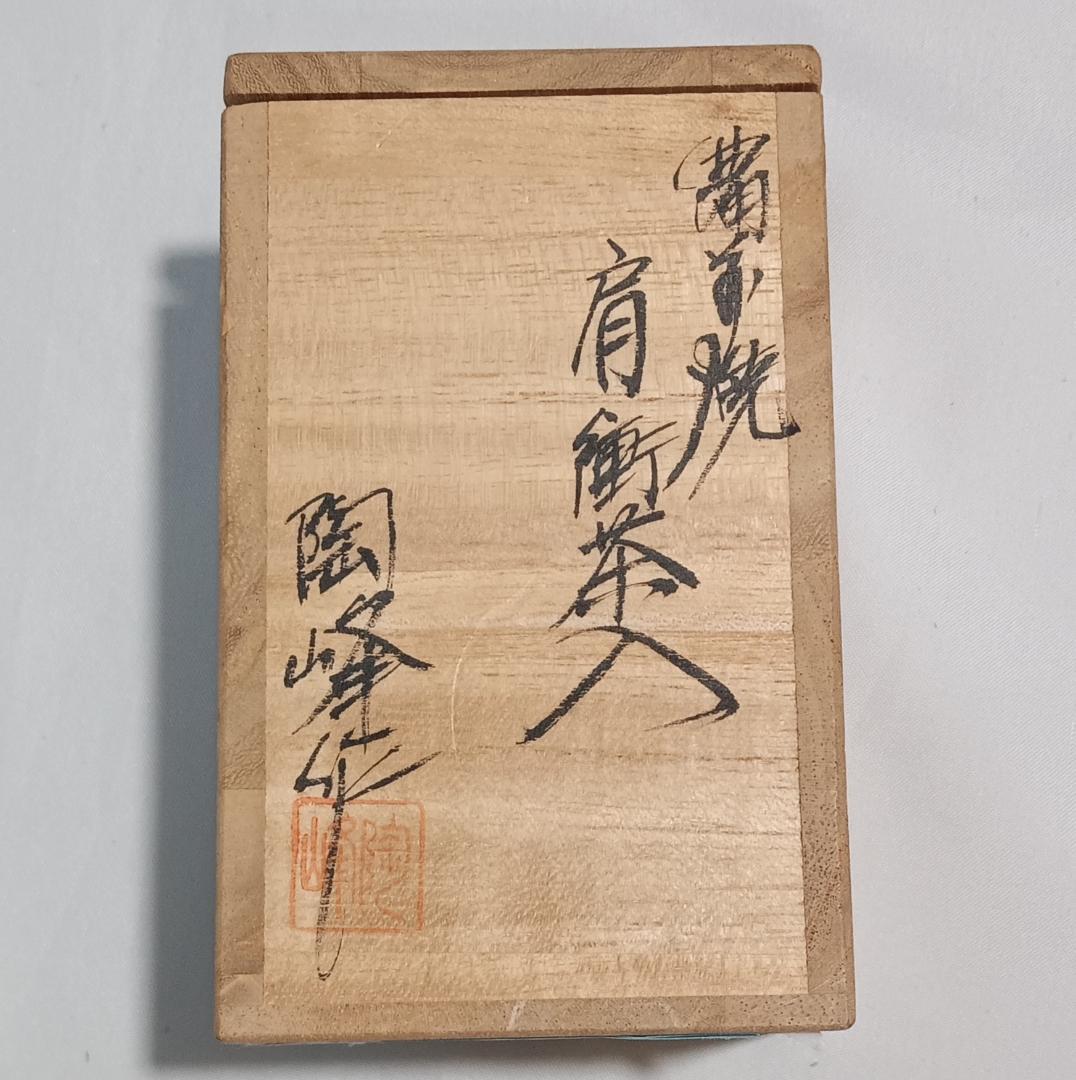 備前焼
肩衝茶入
陶峰作
陶峰